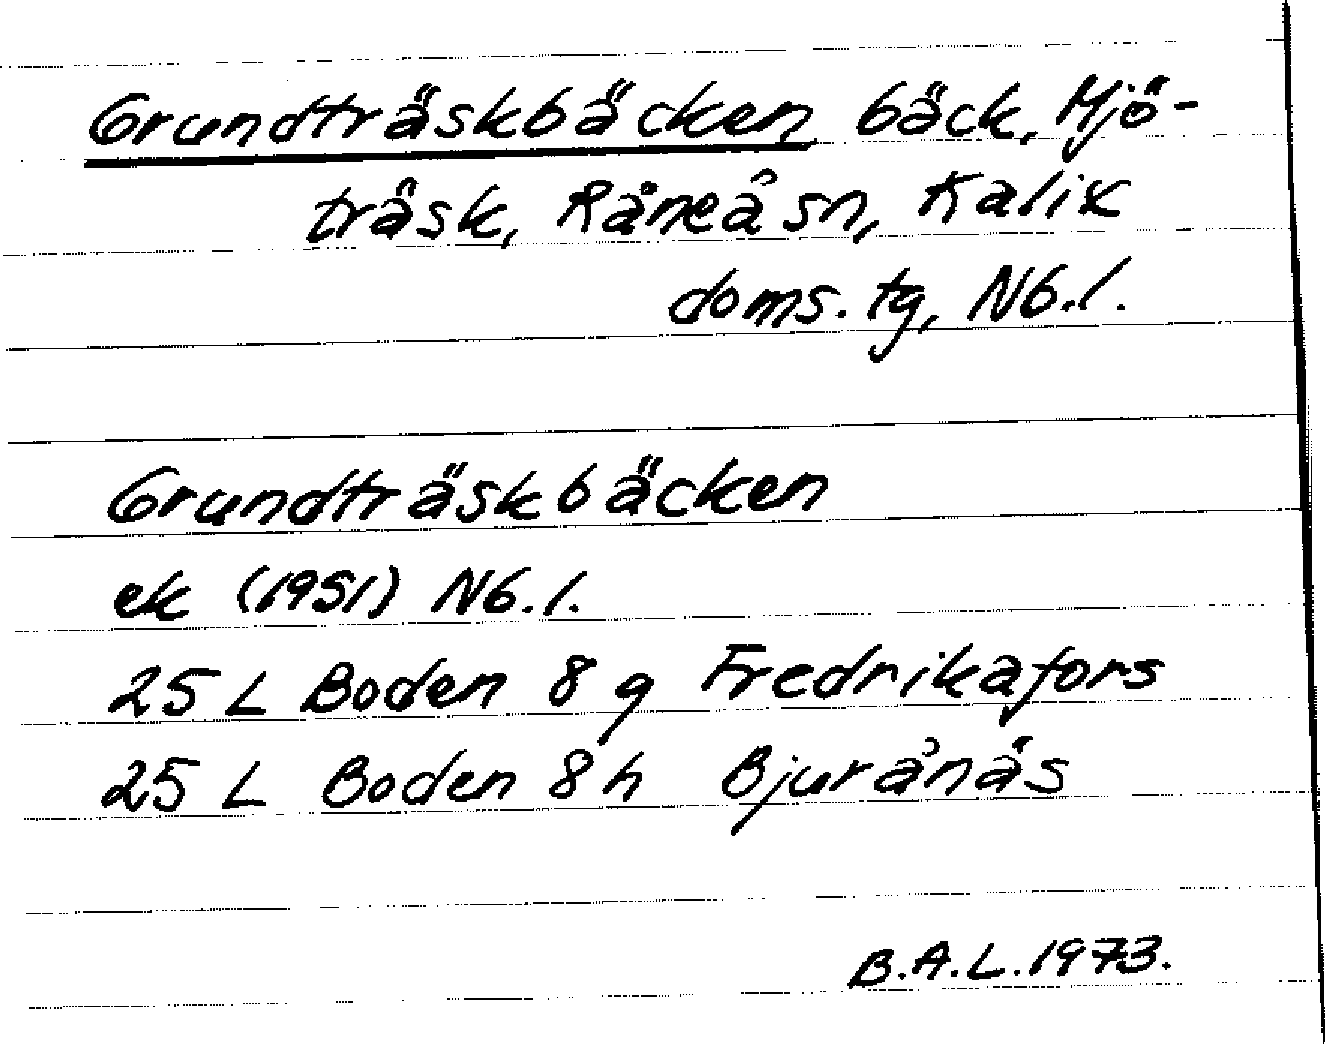 Grundträskbäcken bäck, Mjö-
träsk, Råneå sn, Kalix
doms. tg, Nb.l.
Grundträskbäcken
ek (1951) Nb.l.
25 L Boden 8 g Fredrikafors
25 L Boden 8 h Bjurånäs
B.A.L. 1973.